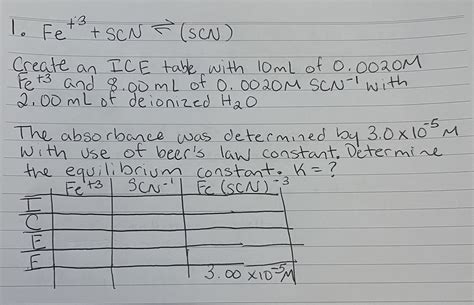 1. Fe⁺³ + SCN ⇌ (SCN)
Create an ICE table with 10mL of 0.0020M
Fe⁺³ and 8.00 mL of 0.0020M SCN⁻¹ with
2.00 mL of deionized H₂O
The absorbance was determined by 3.0 x 10⁻⁵ M
with use of beer's law constant. Determine
the equilibrium constant. K = ?
Fe⁺³ SCN⁻¹ Fe(SCN)⁻³
I
C
E
E 3.00 x10⁻⁵M